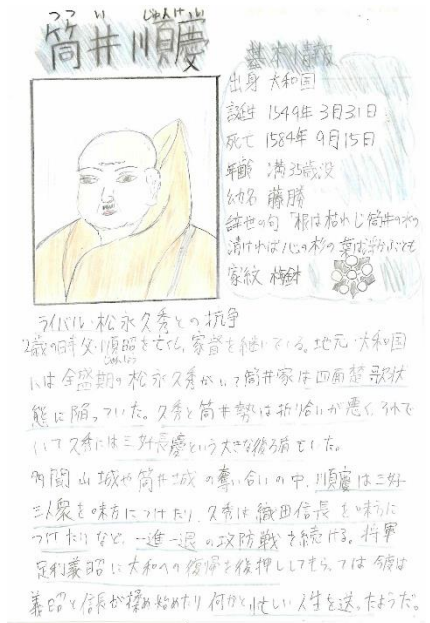 つつ い じゅんけい
筒井順慶
基本情報
出身 大和国
誕生 1549年3月31日
死亡 1584年9月15日
年齢 満35歳没
幼名 藤勝
辞世の句 「根は枯れじ筒井の水の
清ければ心の杉の葉は
家紋 梅鉢
ライバル・松永久秀との抗争
2歳の時父・順昭を亡くし、家督を継いでいる。地元・大和国
じゅんしょう
には全盛期の松永久秀がいて筒井家は四面楚歌状
態に陥っていた。久秀と筒井勢は折り合いが悪く、それで
いて久秀には三好長慶という大きな後ろ盾もいた。
山城や筒井城の奪い合いの中、順慶は三好
三人衆を味方につけたり、久秀は織田信長を味方に
つけたりなど、一進一退の攻防戦を続ける。将軍
足利義昭に大和への復帰を後押ししてもらっては今度は
義昭と信長が揉め始めたり何かと忙しい人生を送ったようだ。